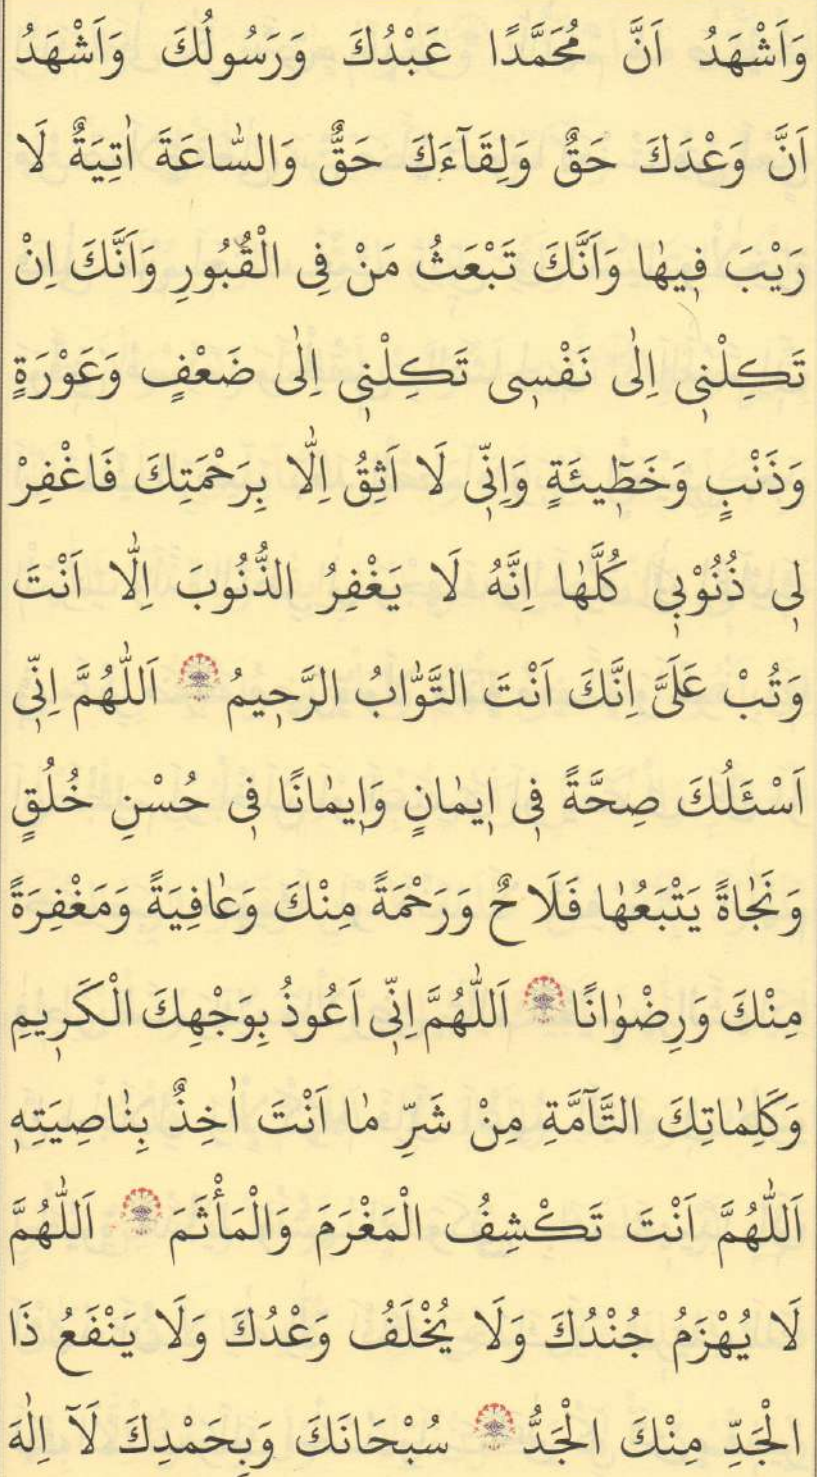 وَاَشْهَدُ اَنَّ مُحَمَّدًا عَبْدُكَ وَرَسُولُكَ وَاَشْهَدُ
اَنَّ وَعْدَكَ حَقٌّ وَلِقَآءَكَ حَقٌّ وَالسَّاعَةَ اٰتِيَةٌ لَا
رَيْبَ فٖيهٰا وَاَنَّكَ تَبْعَثُ مَنْ فِى الْقُبُورِ وَاَنَّكَ اِنْ
تَكِلْنٖى اِلٰى نَفْسٖى تَكِلْنٖى اِلٰى ضَعْفٍ وَعَوْرَةٍ
وَذَنْبٍ وَخَطٖٓيئَةٍ وَاِنّٖى لَا اَثِقُ اِلَّا بِرَحْمَتِكَ فَاغْفِرْ
لٖى ذُنُوْبٖى كُلَّهٰا اِنَّهُ لَا يَغْفِرُ الذُّنُوبَ اِلَّا اَنْتَ
وَتُبْ عَلَىَّ اِنَّكَ اَنْتَ التَّوّٰابُ الرَّحٖيمُ اَللّٰهُمَّ اِنّٖى
اَسْئَلُكَ صِحَّةً فٖى اٖيمٰانٍ وَاٖيمٰانًا فٖى حُسْنِ خُلُقٍ
وَنَجٰاةً يَتْبَعُهٰا فَلَاحٌ وَرَحْمَةً مِنْكَ وَعٰافِيَةً وَمَغْفِرَةً
مِنْكَ وَرِضْوٰانًا اَللّٰهُمَّ اِنّٖى اَعُوذُ بِوَجْهِكَ الْكَرٖيمِ
وَكَلِمٰاتِكَ التَّآمَّةِ مِنْ شَرِّ مٰا اَنْتَ اٰخِذٌ بِنٰاصِيَتِهٖ
اَللّٰهُمَّ اَنْتَ تَكْشِفُ الْمَغْرَمَ وَالْمَأْثَمَ اَللّٰهُمَّ
لَا يُهْزَمُ جُنْدُكَ وَلَا يُخْلَفُ وَعْدُكَ وَلَا يَنْفَعُ ذَا
الْجَدِّ مِنْكَ الْجَدُّ سُبْحَانَكَ وَبِحَمْدِكَ لَآ اِلٰهَ